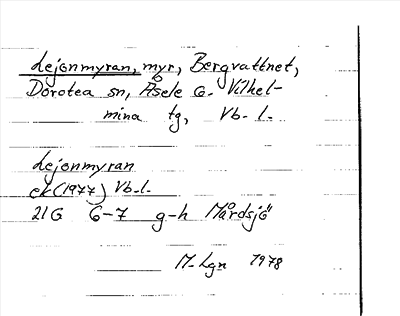 Lejonmyran, myr, Bergvattnet,
Dorotea sn, Åsele o. Vilhel-
mina tg, Vb. l.
Lejonmyran
ek (1977) Vb. l.
21G 6-7 g-h Mårdsjö
M. Lgn 1978